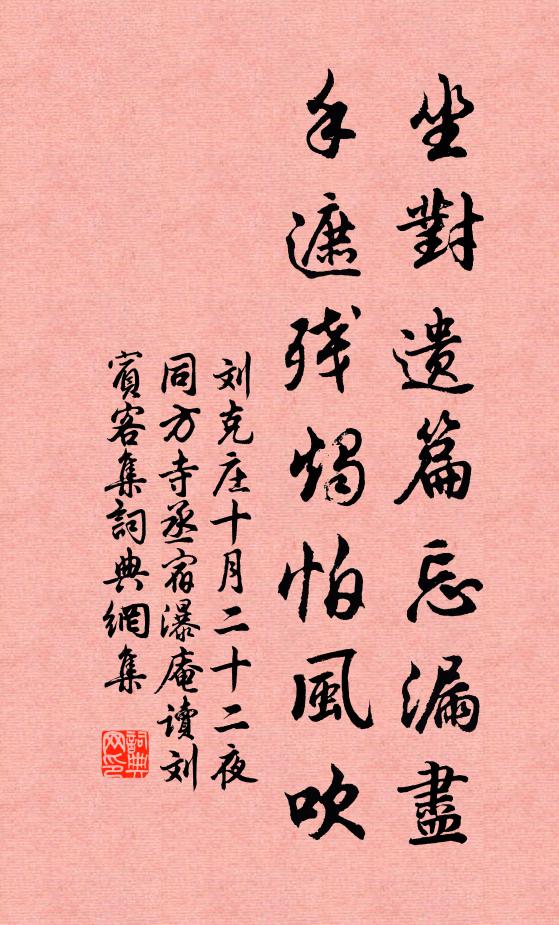 坐對遺篇忘漏盡
手遮残燭怕風吹
刘克庄十月二十二夜
同方寺丞宿瀑庵读刘
賓客集詞典網集
詞典
网印